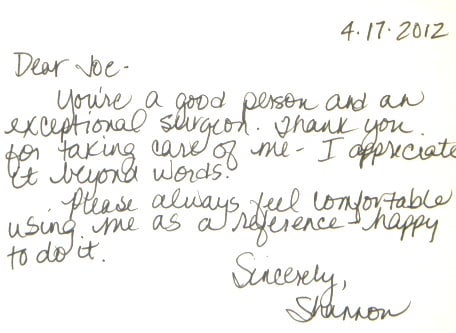 4.17.2012
Dear Joe-
You're a good person and an
exceptional surgeon. Thank you
for taking care of me - I appreciate
it beyond words.
Please always feel comfortable
using me as a reference - happy
to do it.
Sincerely,
Shannon